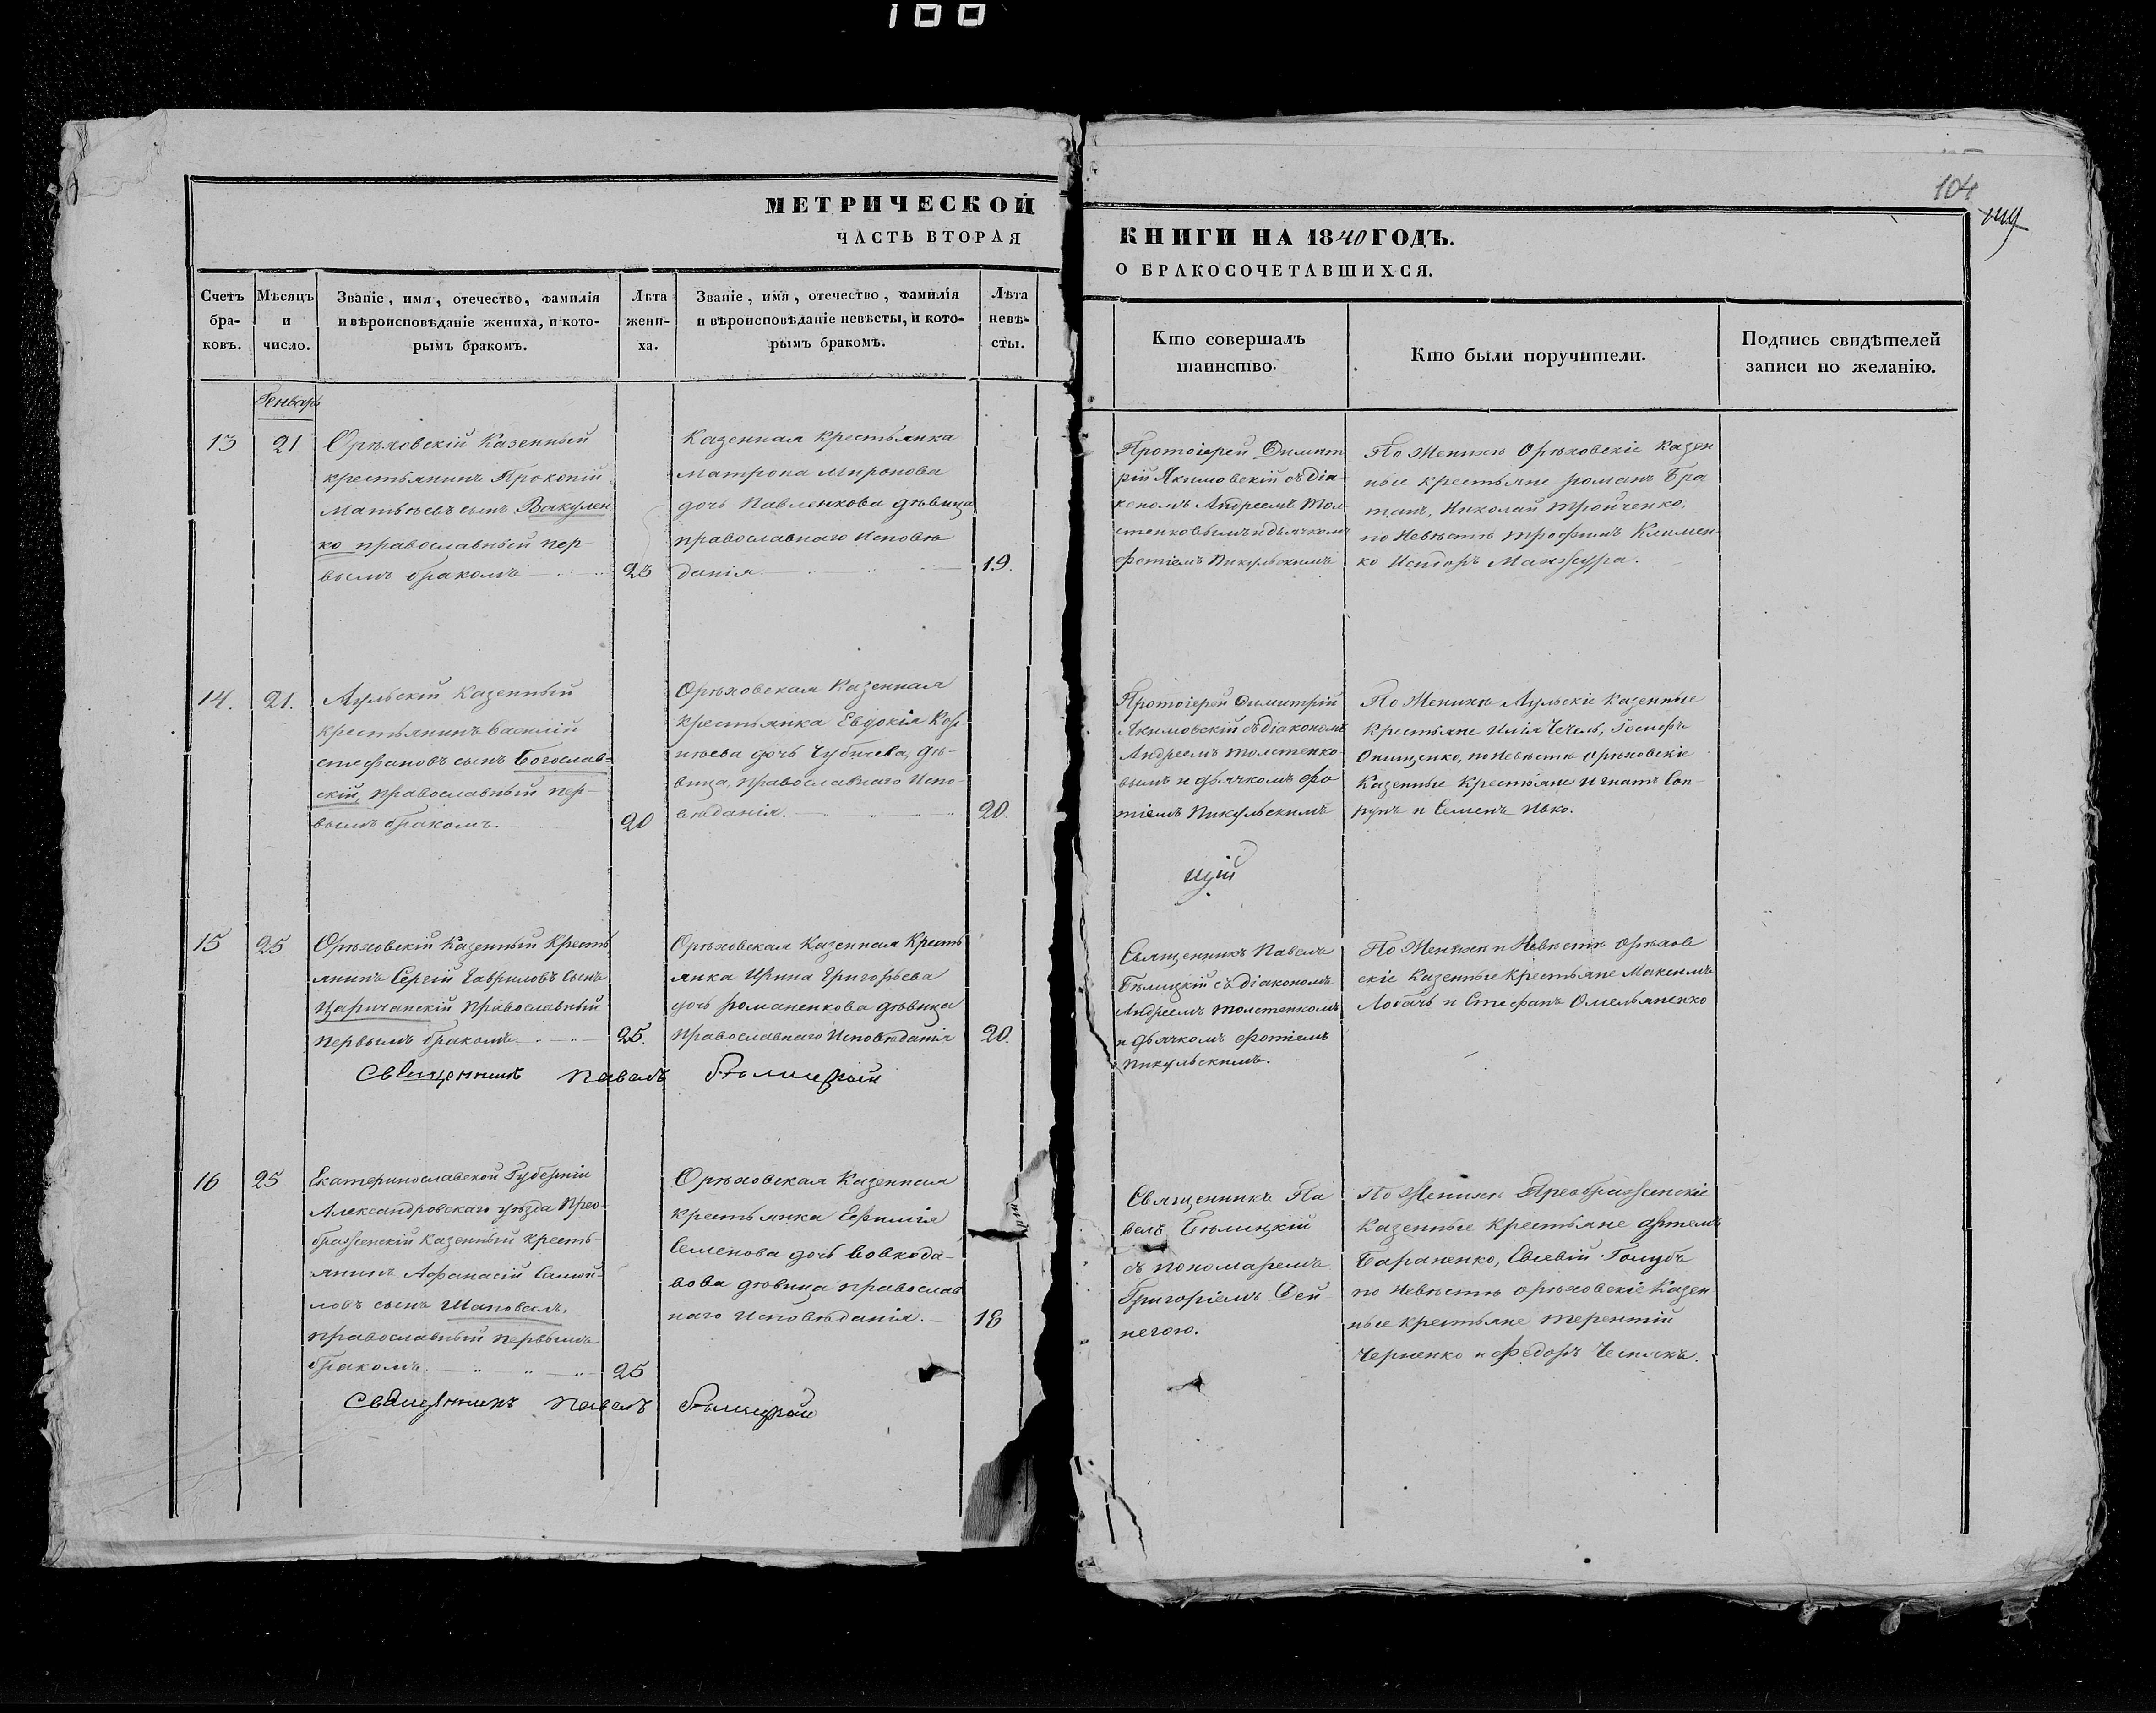 100
104
МЕТРИЧЕСКОЙ
ЧАСТЬ ВТОРАЯ
КНИГИ НА 1840 ГОДЪ.
О БРАКОСОЧЕТАВШИХСЯ.
Счетъ бра-ковъ.
Мѣсяцъ и число.
Званіе, имя, отечество, фамилія
и вѣроисповѣданіе жениха, и кото-
рымъ бракомъ.
Лѣта жени-ха.
Званіе, имя, отечество, фамилія
и вѣроисповѣданіе невѣсты, и кото-
рымъ бракомъ.
Лѣта невѣ-сты.
Кто совершалъ
таинство.
Кто были поручители.
Подпись свидѣтелей
записи по желанію.
Генварь
13
21
Орѣховскій Казенный
крестьянинъ Прокопій
Матвѣевъ сынъ Вакулен
ко православный пер-
вымъ бракомъ
23
Казенная крестьянка
матрона Миронова
дочь Павленкова дѣвица
православнаго Исповѣ
данія
19.
Протоіерей Димит
рій Якимовскій съ діа-
кономъ Андреемъ Тол
стенковымъ и дьячкомъ
фотіемъ Пикульскимъ
По Женихѣ Орѣховскіе Казен
ные крестьяне романъ Бра
танъ, Николай Тройченко,
по Невѣстѣ трофимъ Климен
ко Исидоръ Манжура.
14.
21.
Аульскій Казенный
крестьянинъ василій
стефановъ сынъ Богослав-
скій, православный пер-
вымъ бракомъ.
20
Орѣховская Казенная
крестьянка Евдокія Кор
нѣева дочь Чубичева, дѣ-
вица, православнаго Испо-
вѣданія.
20.
Протоіерей Димитрій
Якимовскій съ діакономъ
Андреемъ толстенко-
вымъ и дьячкомъ фо
тіемъ Пикульскимъ
По Женихѣ Аульскіе Казенные
Крестьяне Илія Чечель, Іосифъ
Онищенко, по Невѣстѣ орѣховскіе
Казенные Крестьяне Игнатъ Соп-
рунъ и Семенъ Ивко.
15
25
Орѣховскій Казенный Кресть
янинъ Сергій Гавриловъ Сынъ
Царичанскій Православный
первымъ бракомъ
25.
Орѣховская Казенная Кресть
янка Ирина Григорьева
дочь романенкова дѣвица
православнаго Исповѣданія
20.
Священникъ Павелъ
Бѣлицкій съ діакономъ
Андреемъ толстенкомъ
и дьячкомъ фотіемъ
Пикульскимъ.
По Женихѣ и Невѣстѣ орѣхов
скіе Казенные Крестьяне Максимъ
Лобачъ и Стефанъ Омельяненко
Священникъ Павелъ Бѣлицкій
16
25
Екатеринославской Губерніи
Александровскаго уѣзда Прео-
браженскій Казенный кресть-
янинъ Афанасій Самой-
ловъ сынъ Шаповалъ,
православный первымъ
бракомъ.
25
Орѣховская Казенная
крестьянка Евфимія
Семенова дочь Вовкода-
вова дѣвица православ
наго исповѣданія.
18
Священникъ Па
велъ Бѣлицкій
съ пономаремъ
Григоріемъ Дей
негою.
По Женихѣ Преображенскіе
Казенные крестьяне артемъ
Бараненко, Евсевій Голубъ
по Невѣстѣ орѣховскіе Казен
ные крестьяне терентій
Черненко и Федоръ Чеснякъ.
Священникъ Павелъ Бѣлицкій